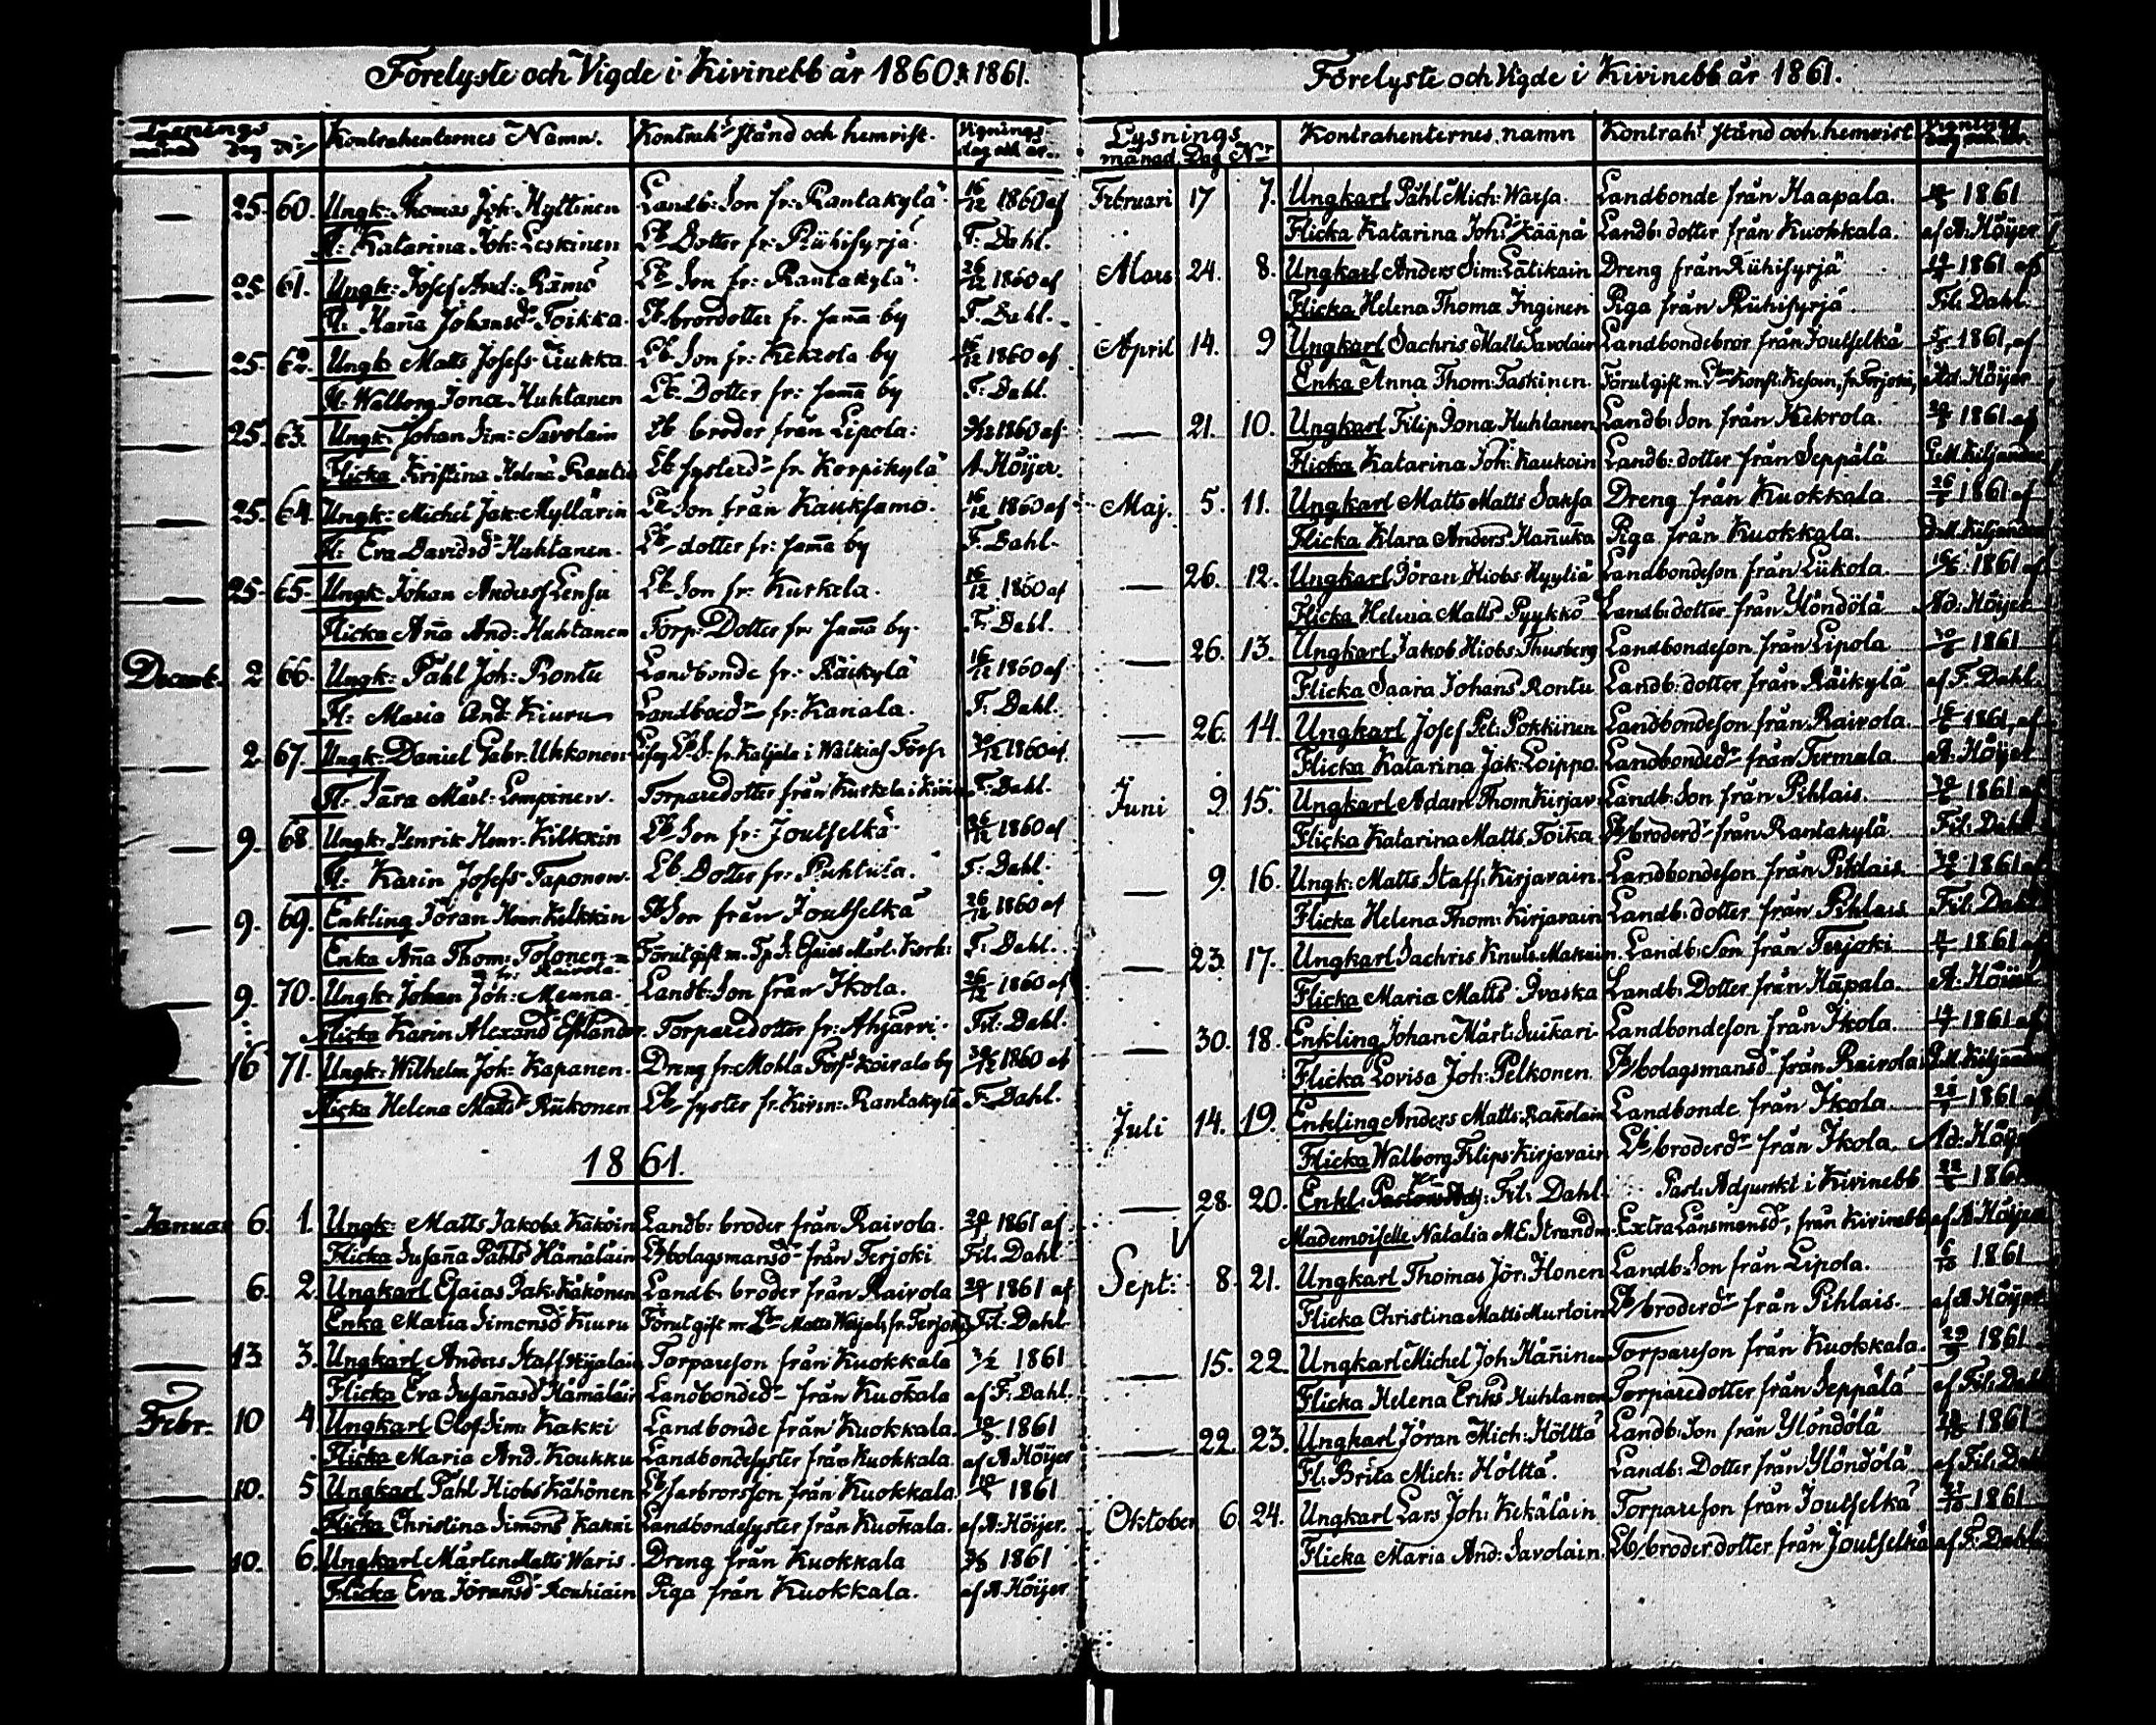 Förelyste och Vigde i Kivinebb år 1860 & 1861.
Lysnings månad dag Nr Kontrahenternes Namn. Kontrah:s stånd och hemvist. Vignings dag och år.
— 25. 60. Ungk: Thomas Joh: Hyttinen Landb: Son fr: Rantakylä 16/12 1860 af
Fl: Katarina Joh: Leskinen Lb Dotter fr: Riihisyrjä F. Dahl.
— 25. 61. Ungk: Josef And: Rämö Lb Son fr: Rantakylä 26/12 1860 af
Fl: Hanna Johansdr Toikka. Lb brordotter fr. samma by F. Dahl.
— 25. 62. Ungk: Matts Josefs Tiukka. Lb Son fr: Kekrola by 16/12 1860 af
Fl: Walborg Jonae Huhtanen Lb Dotter fr: samma by F. Dahl.
— 25. 63. Ungk: Johan Sim: Savolain Lb broder från Lipola: 1860 af
Flicka Kristina Helena Rautia Lb systerdr fr Korpikylä A Höijer.
— 25. 64. Ungk: Michel Jak: Myllärin Lb Son från Kauksamo. 16/12 1860 af
Fl: Eva Davidsdr Huhtanen. Lb dotter fr: samma by F. Dahl.
— 25. 65. Ungk: Johan Anders Lensu Lb Son fr: Kurkela. 16/12 1860 af
Flicka Anna And: Huhtanen Torp: Dotter fr: samma by. F. Dahl.
Decemb. 2 66. Ungk: Påhl Joh: Rontu Landbonde fr: Räikylä 16/12 1860 af
Fl: Maria And: Kiuru Landbodr fr: Kanala. F. Dahl.
— 2. 67. Ungk: Daniel Gabr: Ukkonen fr. Kaljala i Walkjas. Förs: 30/12 1860 af
Fl: Sara Mårt: Lempinen. Torparedotter från Kurkela i Kivin F. Dahl.
— 9. 68. Ungk: Henrik Henr: Kilkkin Lb Son fr: Joutselkä 26/12 1860 af
Fl: Karin Josefs Taponen. Lb Dotter fr: Puhtula. F. Dahl.
— 9. 69. Enkling Jöran Henr: Kilkkin Lb Son från Joutselkä 26/12 1860 af
Enka Anna Thom: Tolonen Förut gift m. Tp S. Esaias Mårt. Kork: F. Dahl.
fr: Raivola.
— 9. 70. Ungk: Johan Joh: Menna. Landb: Son från Ikola. 26/12 1860 af
Flicka Karin Alexand Estlander. Torparedotter fr: Ahjärvi. Fil: Dahl.
— 16 71. Ungk: Wilhelm Joh: Kapanen. Dreng fr: Mohla Förs: Koirala by 30/12 1860 af
Flicka Helena Mattsdr Riikonen Lb syster fr. Kivin: Rantakylä F. Dahl.
1861.
Januar 6. 1. Ungk: Matts Jakobs Käköin Landb: broder från Raivola. 1861 af
Flicka Susanna Påhls Hämäläin Lb bolagsmansdr från Terjoki Fil: Dahl
— 6. 2. Ungkarl Esaias Jak: Käkönen Landb. broder från Raivola 1861 af
Enka Maria Simonsdr Kiuru Förut gift m Matts fr. Terjoki Fil: Dahl
— 13 3. Ungkarl Anders Staff: Torpareson från Kuokkala 3/2 1861
Flicka Eva Susannasdr Hämäläin Landbondedr från Kuokkala af F. Dahl.
Febr. 10 4 Ungkarl Olof Sim: Kakki Landbonde från Kuokkala. 10/3 1861
Flicka Maria And. Koukku Landbondesyster från Kuokkala. af A Höijer
— 10. 5 Ungkarl Påhl Hiobs Kähönen Lb farbrorsson från Kuokkala. 1861
Flicka Christina Simons Kakki Landbondesyster från Kuokkala. af A. Höijer.
— 10. 6. Ungkarl Mårten Matts Waris. Dreng från Kuokkala 1861
Flicka Eva Jöransdr Rouhiain Piga från Kuokkala. af A. Höijer
Förelyste och Vigde i Kivinebb år 1861.
Lysnings månad. Dag Nr Kontrahenternes namn Kontrahs stånd och hemvist Vignings dag och år.
Februari 17 7. Ungkarl Påhl Mich: Warsa. Landbonde från Haapala. 1861
Flicka Katarina Joh: Kääpä Landb: dotter från Kuokkala. af A. Höijer
Mars 24. 8. Ungkarl Anders Sim: Lätikäin Dreng från Riihisyrjä 1861 af
Flicka Helena Thoma Inginen Piga från Riihisyrjä. Fil: Dahl.
April 14. 9 Ungkarl Sachris Matts Savolain Landbondebror från Joutselkä 5/5 1861, af
Enka Anna Thom: Taskinen. Förut gift m. fr Terjoki, Ad. Höijer
— 21. 10. Ungkarl Filip Jona Huhtanen Landb: Son från Kekrola. 1861 af
Flicka Katarina Joh: Kaukoin Landb: dotter från Seppälä G. M. Kiljander
Maj. 5. 11. Ungkarl Matts Matts Saksa Dreng från Kuokkala. 26/5 1861 af
Flicka Klara Anders Hannuka Piga från Kuokkala. G. M. Kiljander
— 26. 12. Ungkarl Jöran Hiobs Hyyliä Landbondeson från Liikola. 1861 af
Flicka Helena Matts Pyykkö Landb: dotter från Ylöndölä Ad: Höijer
— 26. 13. Ungkarl Jakob Hiobs Thusberg Landbondeson från Lipola 1861
Flicka Saara Johans Rontu Landb: dotter från Räikylä af F. Dahl.
— 26. 14. Ungkarl Josef Pet: Pokkinen Landbondeson från Raivola. 1861, af
Flicka Katarina Jak: Loippo. Landbondedr från Termala. A. Höijer
Juni 9. 15. Ungkarl Adam Thom Kirjav. Landb: Son från Pihlais. 1861 af
Flicka Katarina Matts Toikka Lb broderdr från Rantakylä. Fil: Dahl
— 9. 16. Ungk: Matts Staff: Kirjavain. Landbondeson från Pihlais. 1861 af
Flicka Helena Thom: Kirjavain Landb: dotter från Pihlais Fil: Dahl
— 23. 17. Ungkarl Sachris Knuts Makuin. Landb: Son från Terjoki 1861 af
Flicka Maria Matts Ivaska Landb: Dotter från Hapala. A: Höijer
— 30. 18. Enkling Johan Mårt: Suikari Landbondeson från Ikola. 14/7 1861 af
Flicka Lovisa Joh: Pelkonen. Lb bolagsmansdr från Raivola. G. M. Kiljander
Juli 14. 19. Enkling Anders Matts: Räikoläin Landbonde från Ikola 28/7 1861 af
Flicka Walborg Filips Kirjavain Lb broderdr från Ikola. Ad: Höij
— 28. 20. Enkl. Adj: Fil: Dahl. Past: Adjunkt i Kivinebb 186
Mademoiselle Natalia M E Strandm. Extra Länsmansdr, från Kivinebb, af A Höijer
Sept: 8. 21. Ungkarl Thomas Jör: Ilonen Landb: Son från Lipola. 6/10 1861
Flicka Christina Matts Murtoin Lb broderdr från Pihlais. af A Höijer
— 15. 22. Ungkarl Michel Joh: Hänninen Torpareson från Kuokkala. 29/9 1861
Flicka Helena Eriks Huhtanen Torparedotter från Seppälä af Fil: Dahl
— 22. 23. Ungkarl Jöran Mich: Hölttä Landb: Son från Ylöndölä 1861
Fl. Brita Mich: Hölttä. Landb: Dotter från Ylöndölä af Fil: Dahl
Oktober 6. 24. Ungkarl Lars Joh: Kekäläin Torpareson från Joutselkä 1861
Flicka Maria And: Savolain. Lb broderdotter från Joutselkä af F. Dahl.